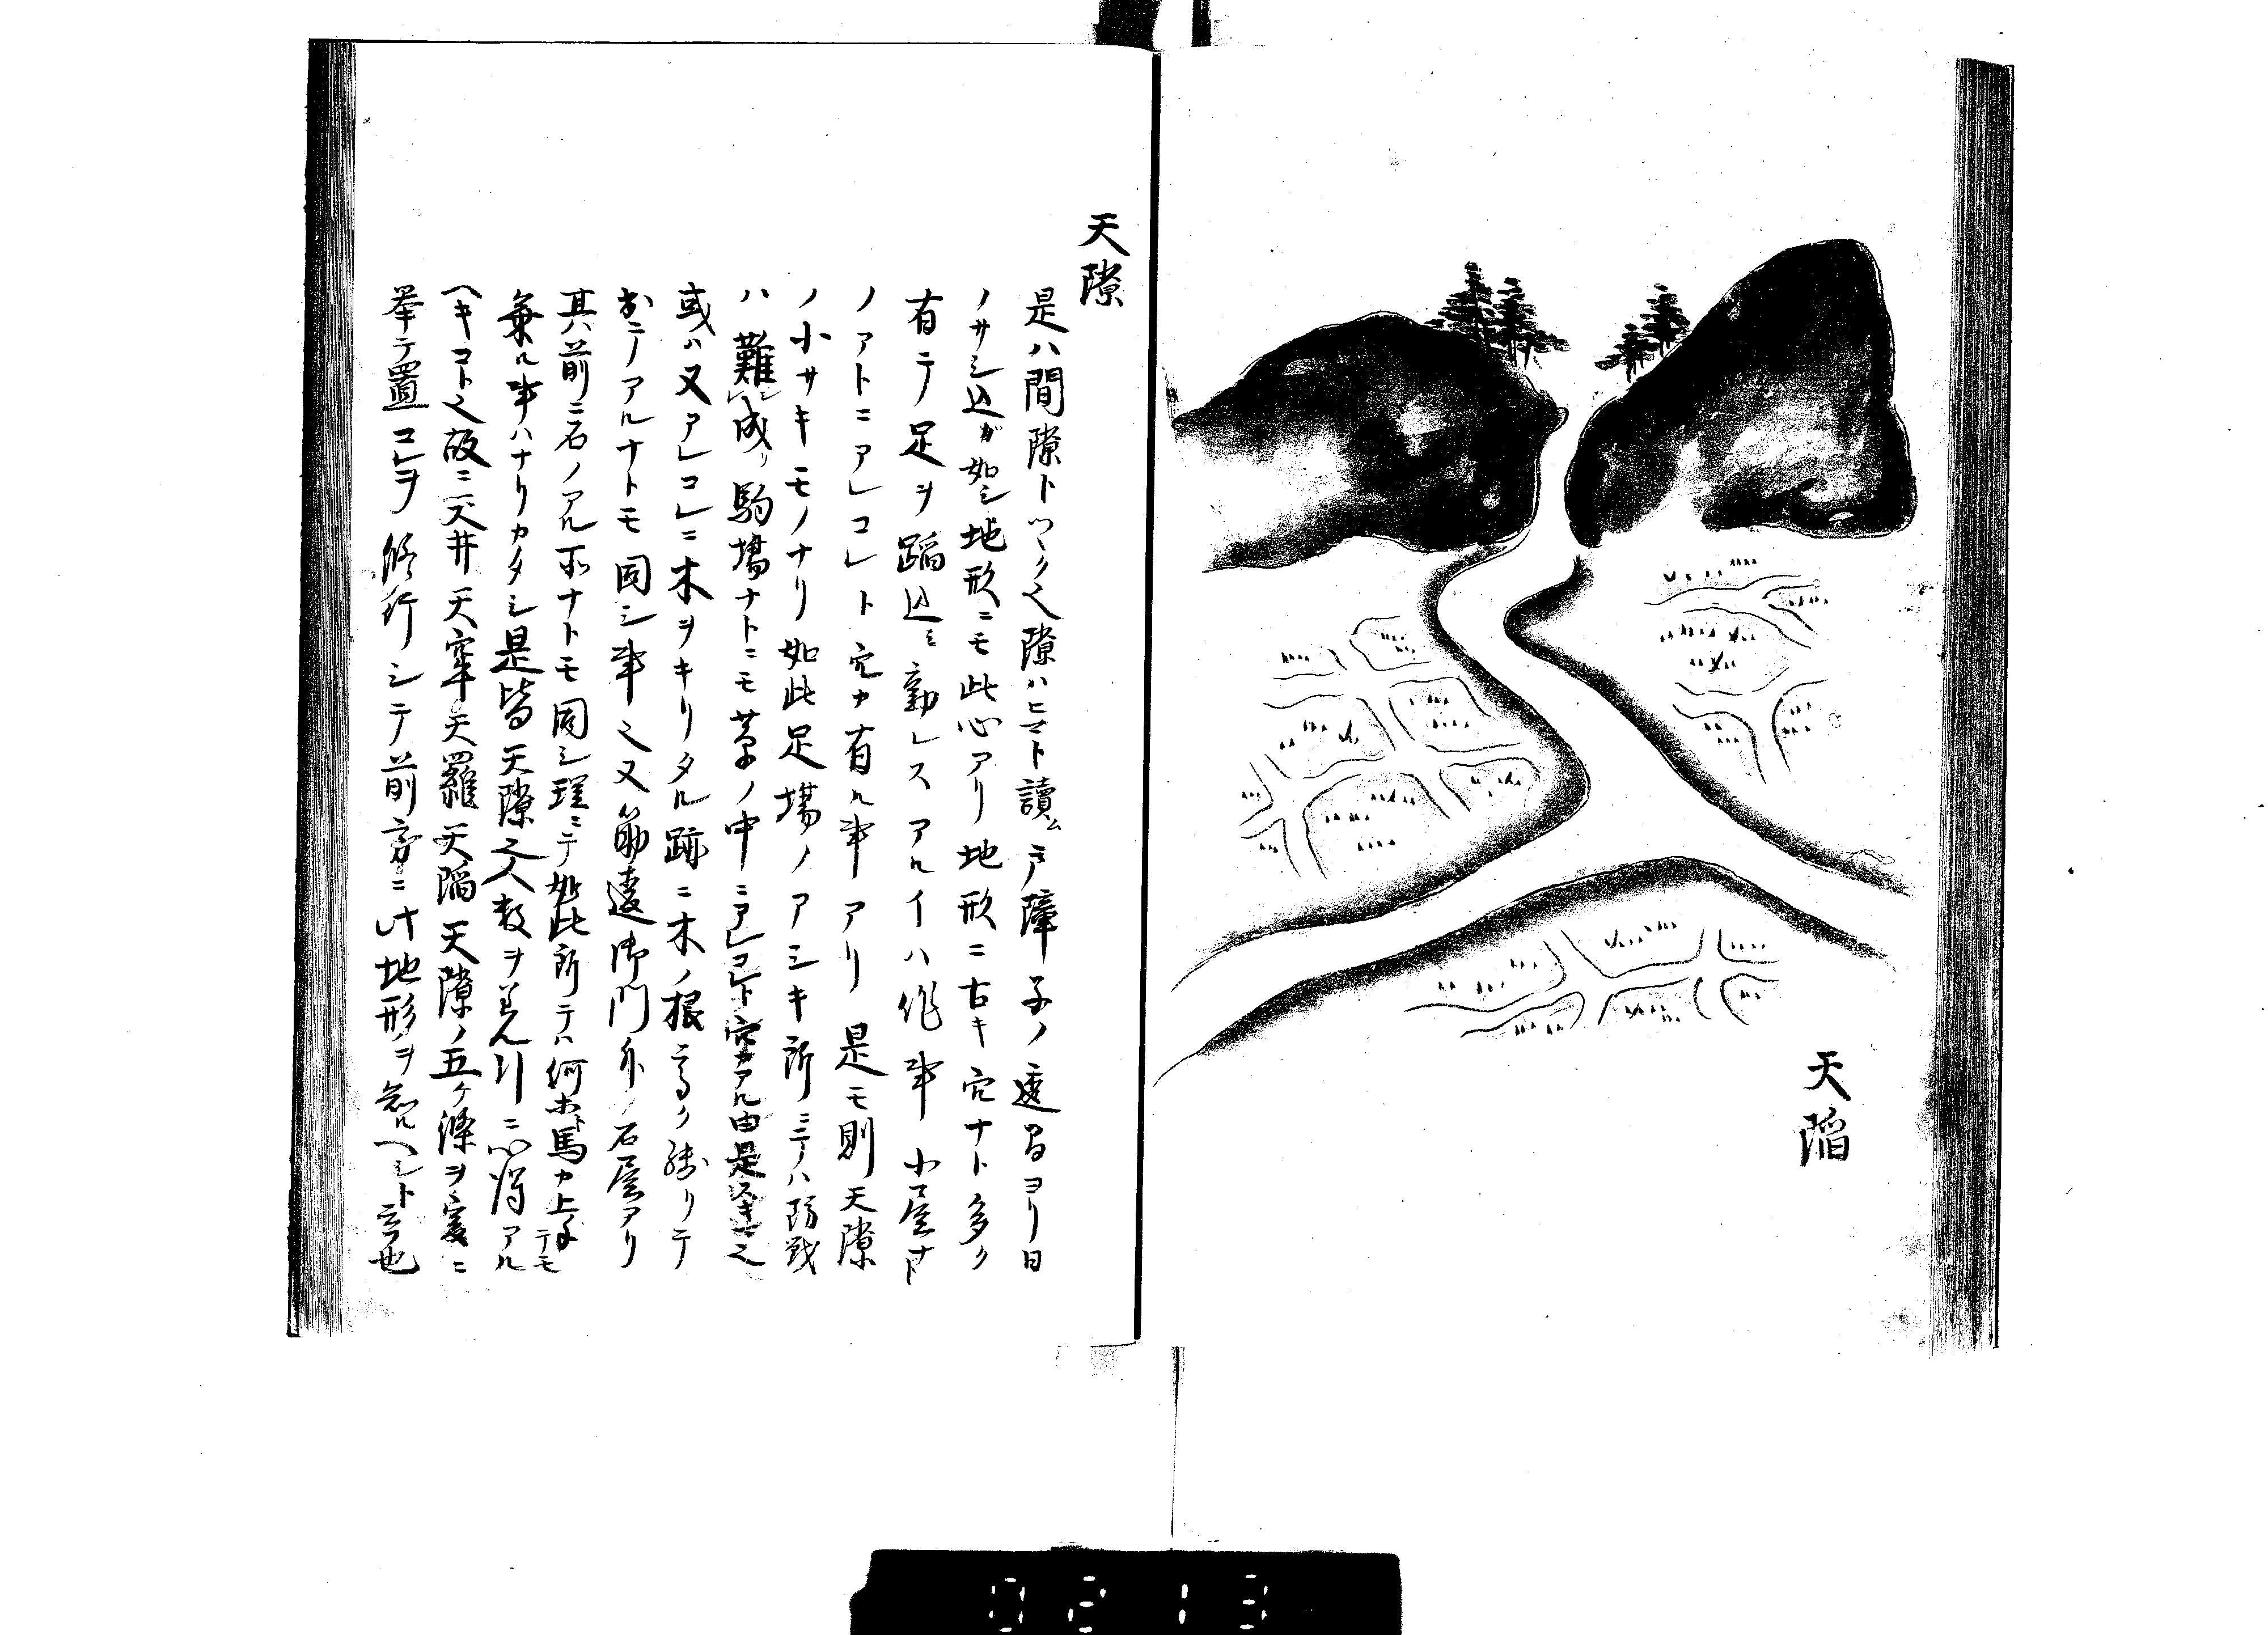 天陷
天隙
是ハ間隙トツヽク之隙ハヒマト讀ム戸障子ノ透間ヨリ日
ノサシ込ガ如シ地形ニモ此心アリ地形ニ古キ穴ナト多ク
有テ足ヲ蹈込ミ動レスアルイハ作事小屋ナト
ノアトニアレコレト穴カ有ル事アリ是モ則天隙
ノ小サキモノナリ如此足場ノアシキ所ニテハ防戦
ハ難シ成リ駒場ナトニモ草ノ中ニアレコレト穴カアル由是
或ハ又アレコレニ木ヲキリタル跡ニ木ノ根高ク残リテ
ニアルナトモ同シ事之又筋違御門外ノ石屋アリ
其前ニ石ノアル所ナトモ同シ理ニテ如此所テハ何ホト馬カ上手ニテモ
乗ル事ハナリカタシ是皆天隙之人数ヲ引ニ心得アル
ヘキコト之故ニ天井天牢天羅天陷天隙ノ五ケ條ヲ爰ニ
挙テ置コレヲ修行シテ前方ニ此地形ヲ知ルヘシト云也
0213